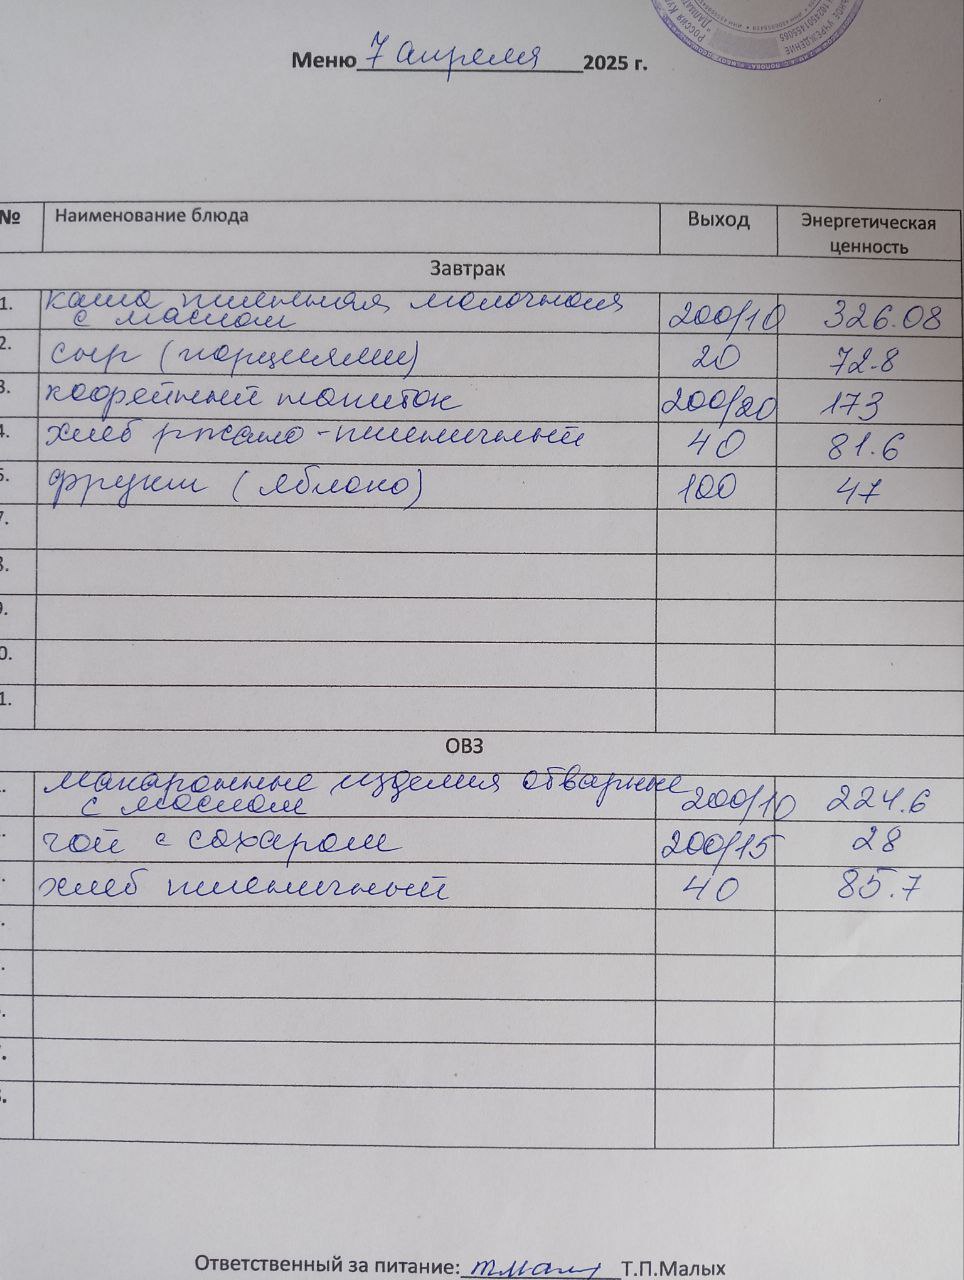 Меню 7 апреля 2025 г.
№ Наименование блюда Выход Энергетическая ценность
Завтрак
1. каша пшенная молочная
с маслом 200/10 326.08
2. сыр (порциями) 20 72.8
3. кофейный напиток 200/20 173
4. хлеб ржано-пшеничный 40 81.6
5. фрукт (яблоко) 100 47
7.
8.
9.
0.
1.
ОВЗ
макаронные изделия отварные
с маслом 200/10 224.6
чай с сахаром 200/15 28
хлеб пшеничный 40 85.7
Ответственный за питание: Т.П.Малых